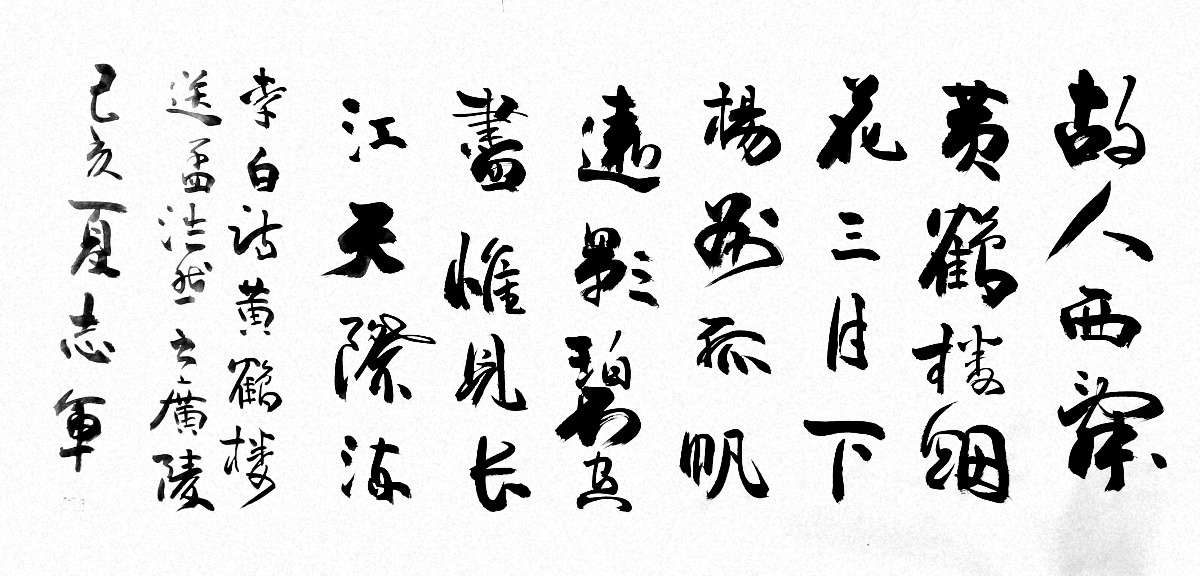 故人西辭
黄鶴楼烟
花三月下
楊州孤帆
遠影碧空
盡惟見长
江天際流
李白诗黄鶴楼
送孟浩然之廣陵
己亥夏志軍